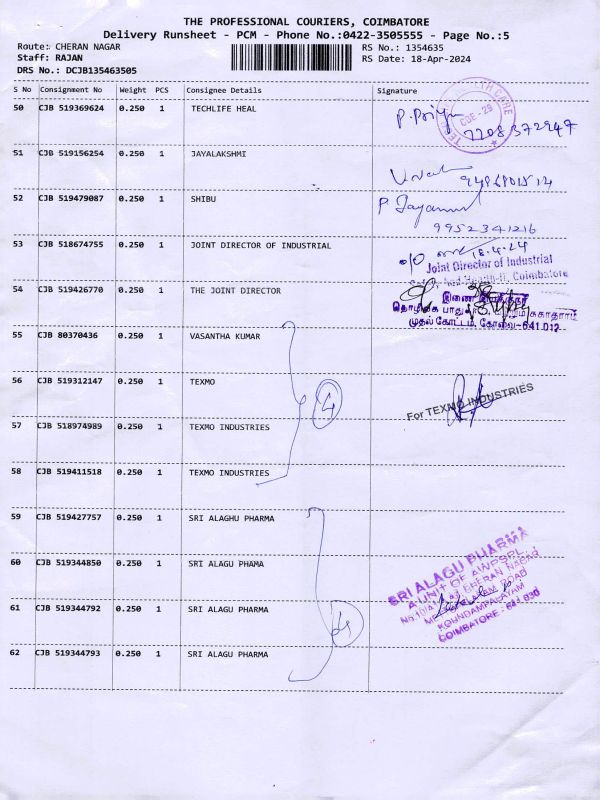 THE PROFESSIONAL COURIERS, COIMBATORE
Delivery Runsheet - PCM - Phone No.:0422-3505555 - Page No.:5
Route: CHERAN NAGAR
RS No.: 1354635
Staff: RAJAN
RS Date: 18-Apr-2024
DRS No.: DCJB135463505
S No Consignment No Weight PCS Consignee Details Signature
50 CJB 519369624 0.250 1 TECHLIFE HEAL
P. Priya
7708372947
51 CJB 519156254 0.250 1 JAYALAKSHMI
52 CJB 519479087 0.250 1 SHIBU
9952341216
53 CJB 518674755 0.250 1 JOINT DIRECTOR OF INDUSTRIAL
18.4.24
Joint Director of Industrial
Coimbatore
54 CJB 519426770 0.250 1 THE JOINT DIRECTOR
இணை இயக்குநர்
சுகாதாரம்
முதல் கோட்டம், கோவை-641 012
55 CJB 80370436 0.250 1 VASANTHA KUMAR
56 CJB 519312147 0.250 1 TEXMO
4
For TEXMO INDUSTRIES
57 CJB 518974989 0.250 1 TEXMO INDUSTRIES
58 CJB 519411518 0.250 1 TEXMO INDUSTRIES
59 CJB 519427757 0.250 1 SRI ALAGHU PHARMA
60 CJB 519344850 0.250 1 SRI ALAGU PHAMA
SRI ALAGU PHARMA
A UNIT OF AWPSPL
CHERAN NAGAR
ROAD
KOUNDAMPALAYAM
COIMBATORE - 641 030
61 CJB 519344792 0.250 1 SRI ALAGU PHARMA
4
62 CJB 519344793 0.250 1 SRI ALAGU PHARMA